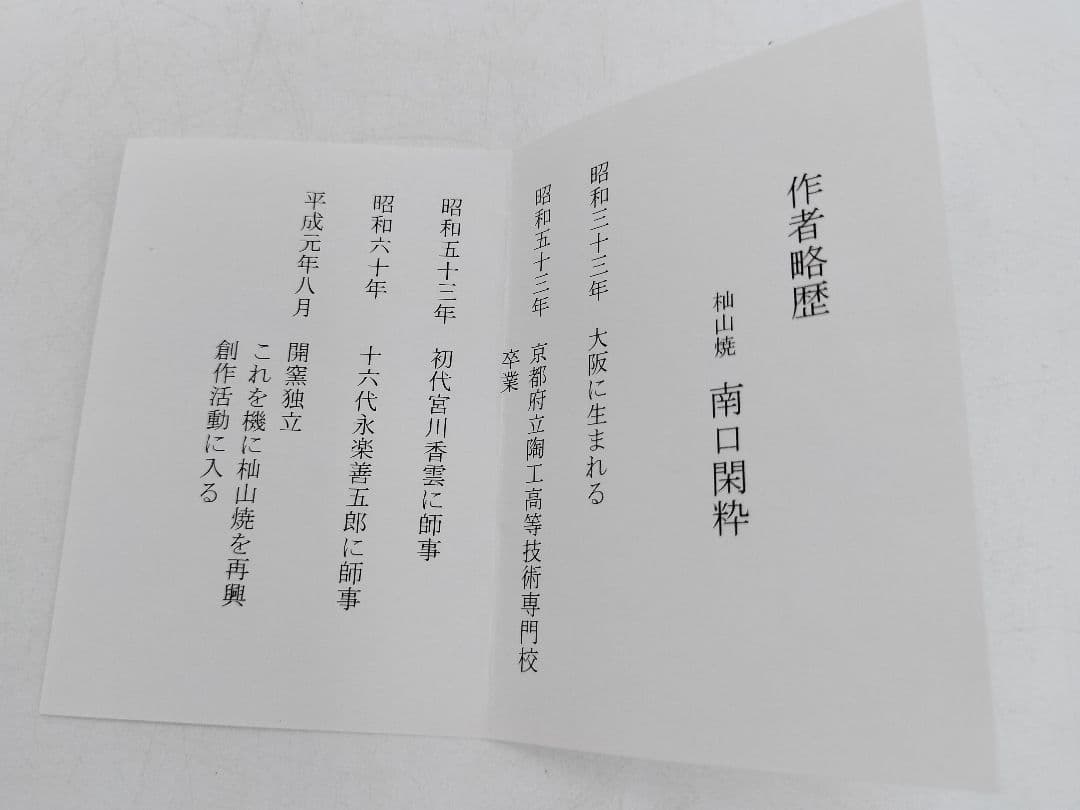 作者略歴
杣山焼 南口閑粋
昭和三十三年 大阪に生まれる
昭和五十三年 京都府立陶工高等技術専門校
卒業
昭和五十三年 初代宮川香雲に師事
昭和六十年 十六代永楽善五郎に師事
平成元年八月 開窯独立
これを機に杣山焼を再興
創作活動に入る